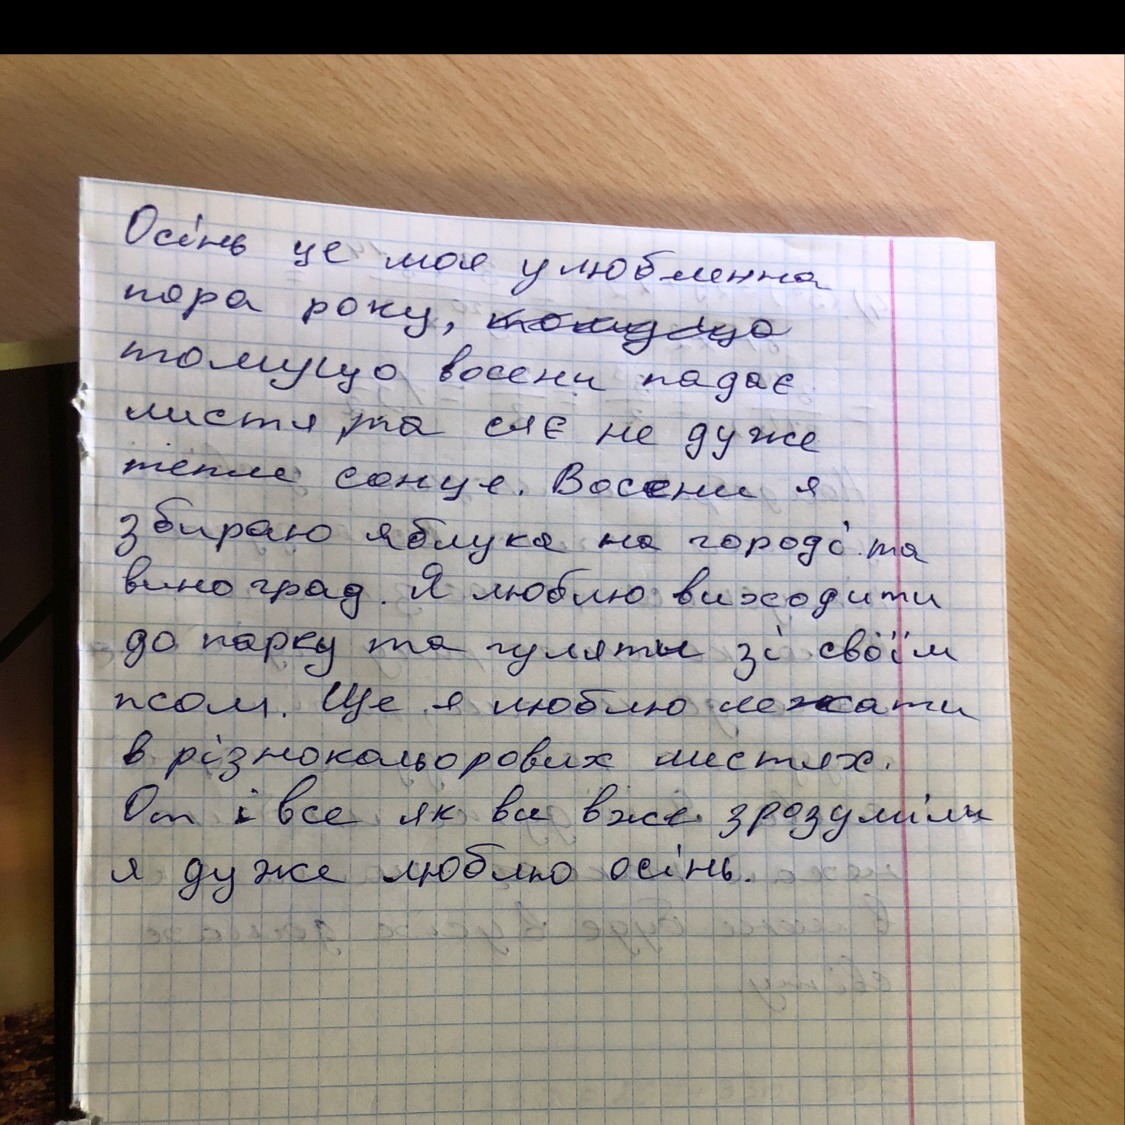 Осінь це моя улюбленна
пора року,
томущо восени падає
листя та сяє не дуже
тепле сонце. Восени я
збираю яблука на городі та
виноград. Я люблю виходити
до парку та гуляты зі своїм
псом. Ще я люблю лежати
в різнокольорових листях.
От і все як ви вже зрозуміли
я дуже люблю осінь.